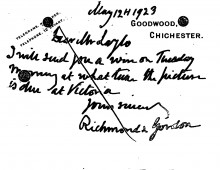 May 12th 1923
GOODWOOD,
CHICHESTER.
Dear Mr Leylo
I will send you a wire on Tuesday
morning at what time the picture
is due at Victoria
Yours sincerely
Richmond & Gordon